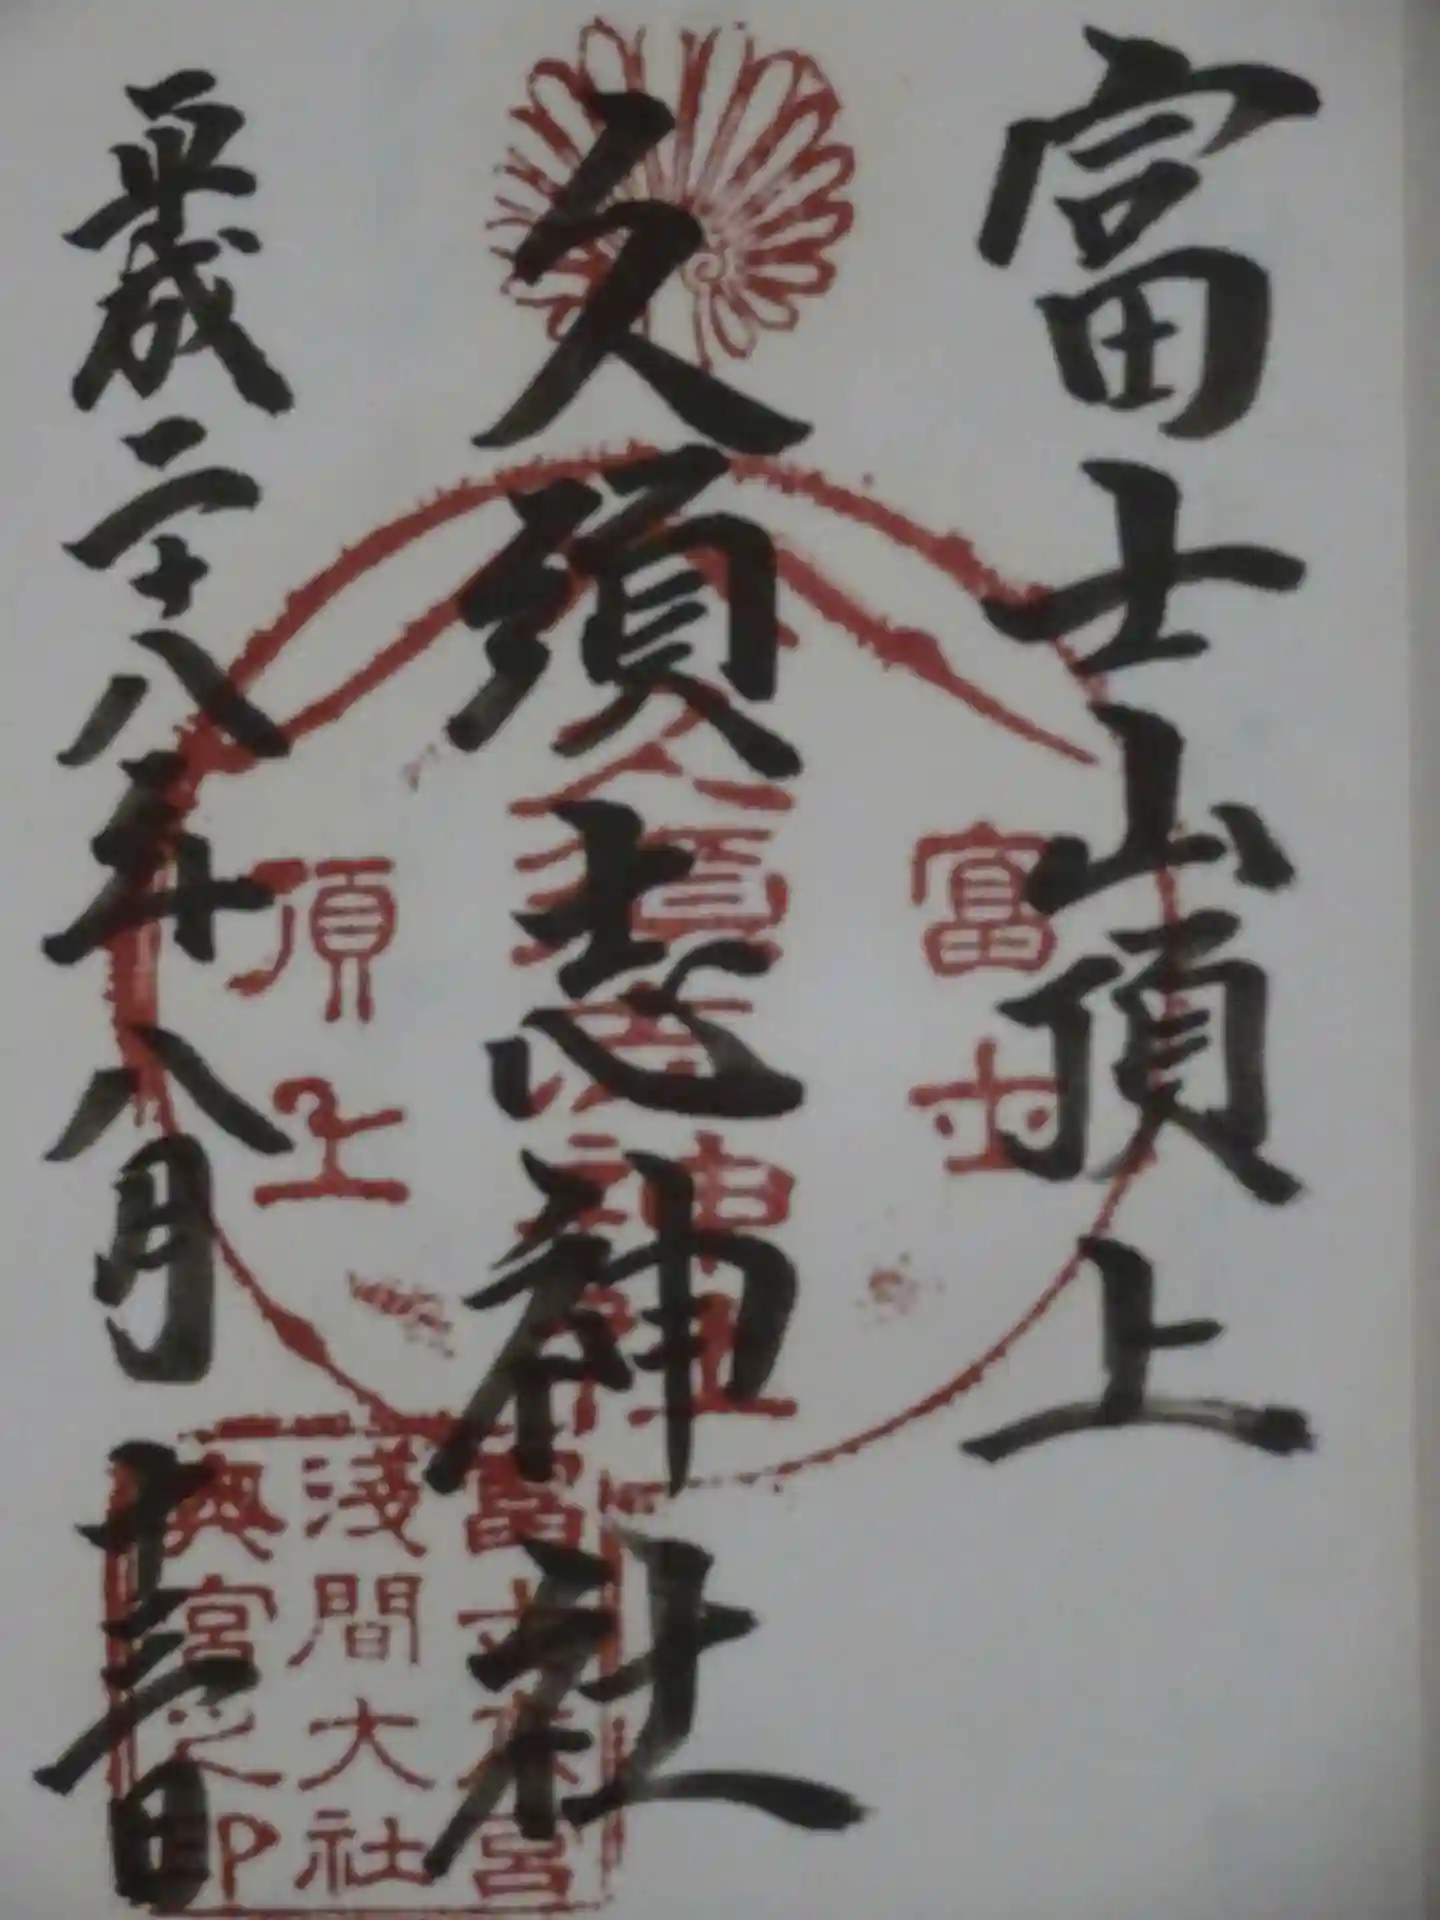 富士山頂上
久須志神社
平成二十八年八月十三日
富士
頂上
久須志神社
富士山本宮
浅間大社
奥宮之印